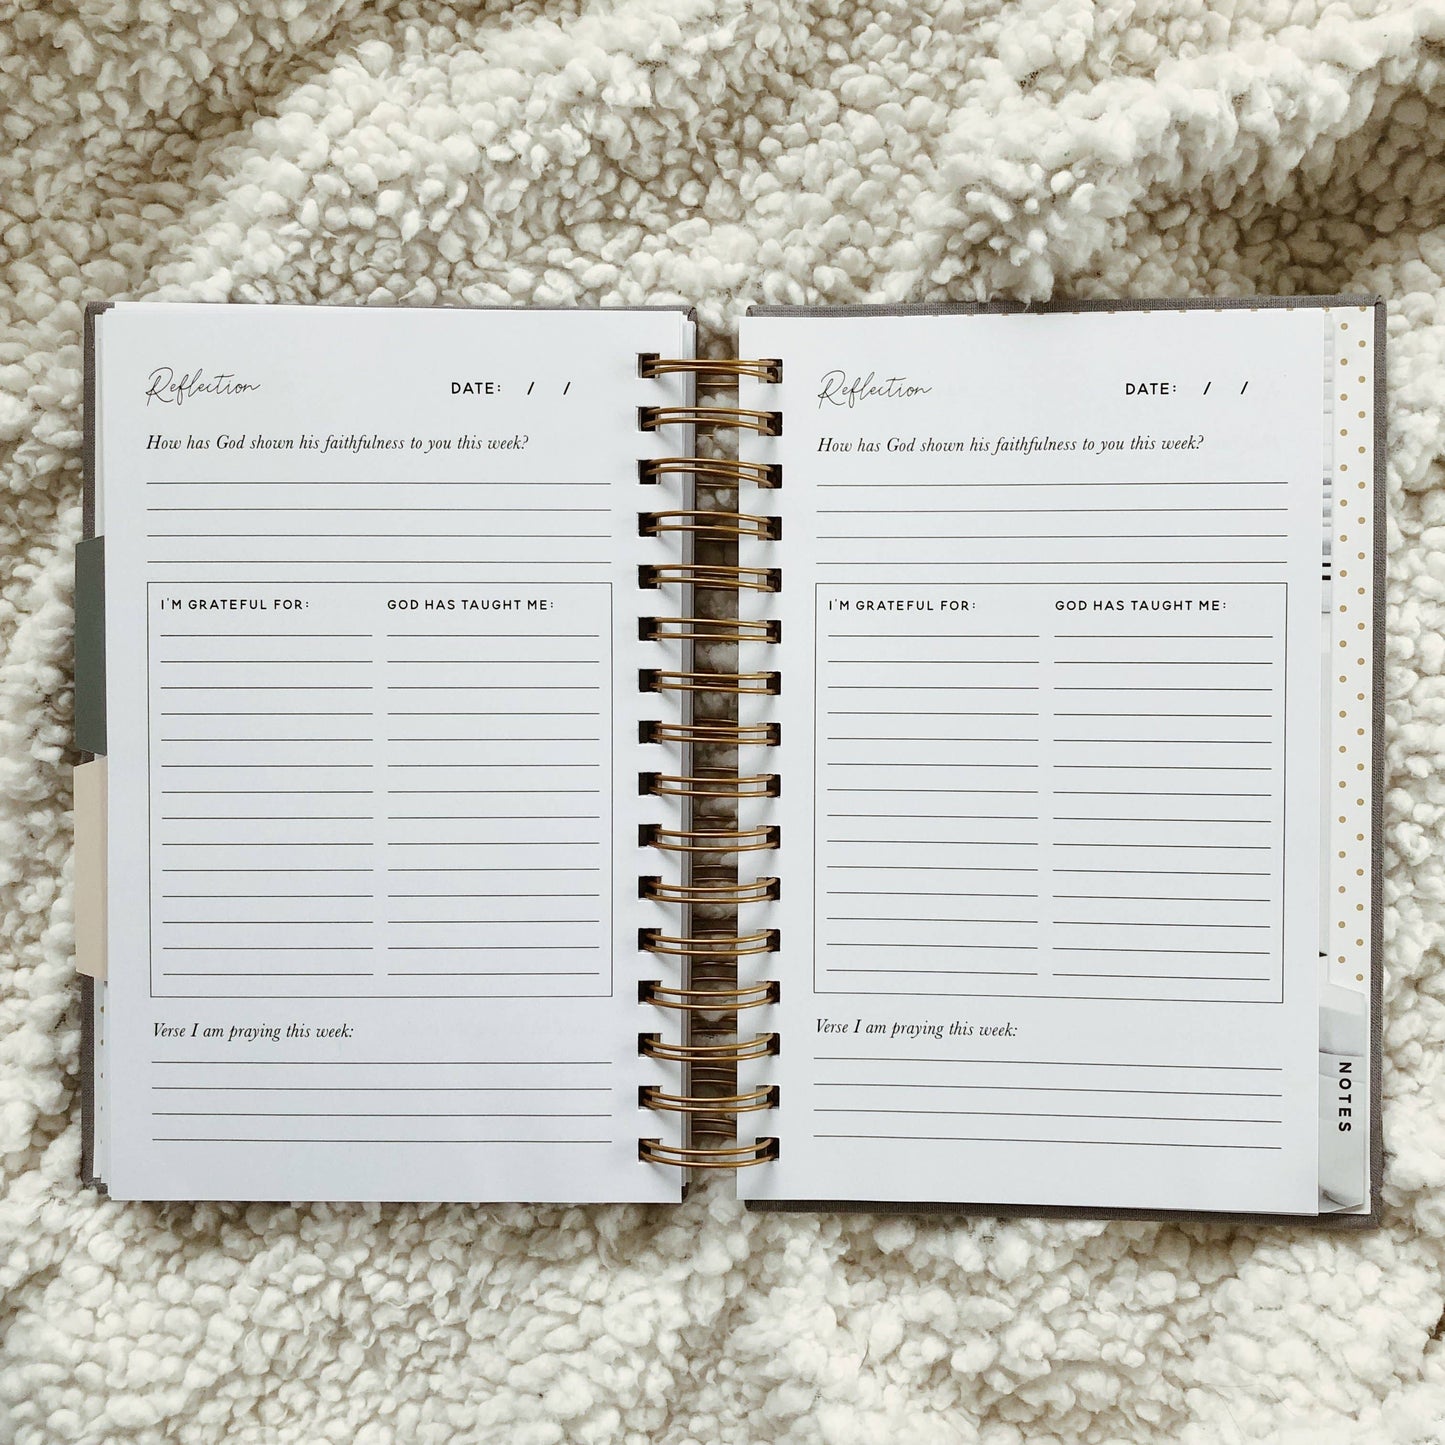 Reflection
DATE: / /
How has God shown his faithfulness to you this week?
I'M GRATEFUL FOR:
GOD HAS TAUGHT ME:
Verse I am praying this week:
Reflection
DATE: / /
How has God shown his faithfulness to you this week?
I'M GRATEFUL FOR:
GOD HAS TAUGHT ME:
Verse I am praying this week:
NOTES